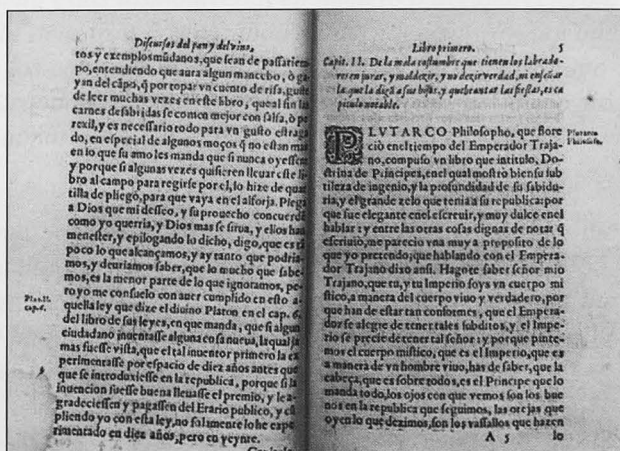 Discursos del pan y del vino,
tos y exemplos mūdanos, que sean de passatiem
po, entendiendo que aura algun mancebo, ò ga
ñan del cāpo, q̃ por topar vn cuento de risa, guste
de leer muchas vezes en este libro, que al fin las
carnes desabidas se comen mejor con salsa, ò pe
rexil, y es necessario todo para vn gusto estraga
do, en especial de algunos moços q̃ no estan mas
en lo que su amo les manda que si nunca o yessen
y porque si algunas vezes quisieren lleuar este li
bro al campo para regirse por el, lo hize de quar
tilla de pliego, para que vaya en el alforja. Plega
a Dios que mi desseo, y su prouecho concuerdē
como yo querria, y Dios mas se sirua, y ellos han
menester, y epilogando lo dicho, digo, que es tā
poco lo que alcançamos, y ay tanto que podria-
mos, y deuriamos saber, que lo mucho que sabe-
mos, es la menor parte de lo que ignoramos, pe-
ro yo me consuelo con auer cumplido en esto a-
quella ley que dize el diuino Platon en el cap. 6.
del libro de sus leyes, en que manda, que si algun
ciudadano inuentasse alguna cosa nueua, la qual ja
mas fuesse vista, que el tal inuentor primero la ex
perimentasse por espacio de diez años antes que
que se introduxiesse en la republica, porque si la
inuencion fuesse buena lleuasse el premio, y le a-
gradeciessen y pagassen del Erario publico, y cū
pliendo yo con esta ley, no solamente lo he expe
rimentado en diez años, pero en veynte.
Plat. ll.
cap. 6.
Libro primero. 5
Capit. II. De la mala costumbre que tienen los labrado-
res en jurar, y maldezir, y no dezir verdad, ni enseñar
la que la digā a sus hijos, y quebrantar las fiestas, es ca
pitulo notable.
PLVTARCO Philosopho, que flore
ciò en el tiempo del Emperador Traja-
no, compuso vn libro que intitulo, Do-
trina de Principes, en el qual mostrò bien su sub
tileza de ingenio, y la profundidad de su sabidu-
ria, y el grande zelo que tenia a su republica: por
que fue elegante en el escreuir, y muy dulce en el
hablar: y entre las otras cosas dignas de notar q̃
escriuiò, me parecio vna muy a proposito de lo
que yo pretendo; que hablando con el Empera-
dor Trajano dixo ansi. Hagote saber señor mio
Trajano, que tu, y tu Imperio soys vn cuerpo mi
stico, a manera del cuerpo viuo y verdadero, por
que han de estar tan conformes, que el Empera-
dor se alegre de tener tales subditos, y el Impe-
rio se precie de tener tal señor: y porque pinte-
mos el cuerpo mistico, que es el Imperio, que es
a manera de vn hombre viuo, has de saber, que la
cabeça, que es sobre todos, es el Principe que lo
manda todo, los ojos con que vemos son los bue
nos en la republica que seguimos, las orejas que
oyen lo que dezimos, son los vassallos que hazen
Plutarco
Philosofo.
A 5 lo